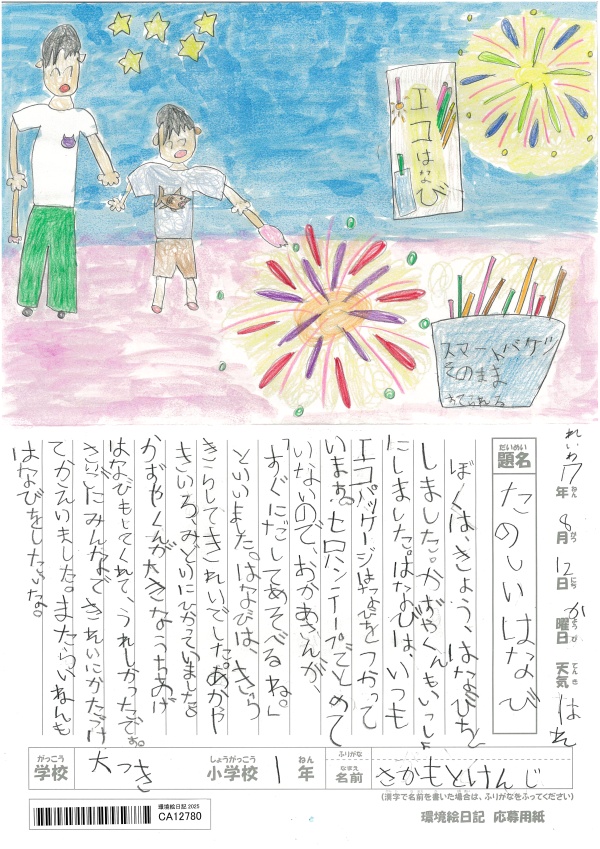 エコはなび
スマートバケツ
そのまま
すてられる
れいわ17年8月12日か曜日天気はれ
ねん がつ にち ようび てんき
だいめい
題名
たのしいはなび
ぼくは、きょう、はなびを
しました。かずやくんもいっしょ
にしました。はなびは、いつも
エコパッケージはなびをつかって
います。セロハンテープでとめて
いないので、おかあさんが、
「すぐにだしてあそべるね。」
といいました。はなびは、きら
きらしてきれいでした。あかや
きいろ、みどりにひかっていました。
かずやくんが大きなうちあげ
はなびもしてくれて、うれしかったです。
さいごにみんなできれいにかたづけ
てかえりました。またらいねんも
はなびをしたいな。
がっこう
学校
大つき
しょうがっこう
小学校
1
ねん
年
ふりがな
なまえ
名前
さかもとけんじ
(漢字で名前を書いた場合は、ふりがなをふってください)
環境絵日記 2025
CA12780
環境絵日記 応募用紙